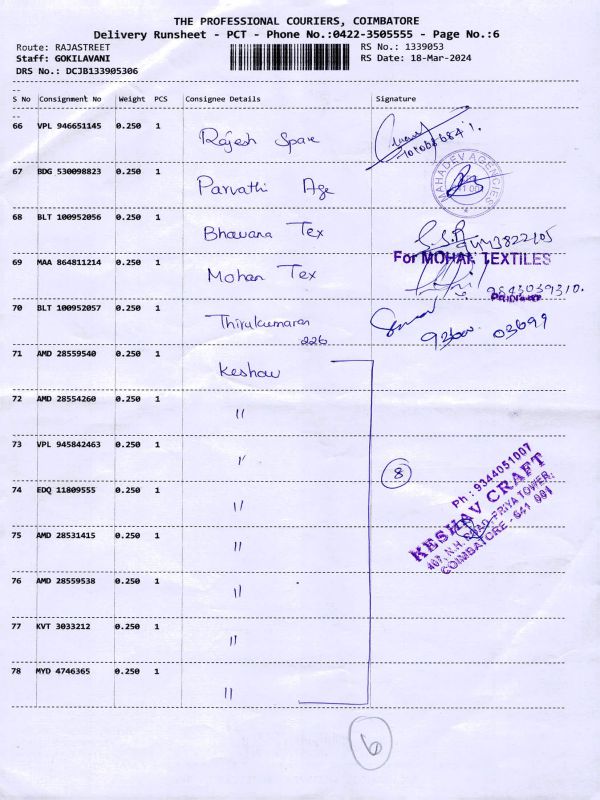 THE PROFESSIONAL COURIERS, COIMBATORE
Delivery Runsheet - PCT - Phone No.:0422-3505555 - Page No.:6
Route: RAJASTREET RS No.: 1339053
Staff: GOKILAVANI RS Date: 18-Mar-2024
DRS No.: DCJB133905306
S No Consignment No Weight PCS Consignee Details Signature
66 VPL 946651145 0.250 1 Rajesh Spare
67 BDG 530098823 0.250 1 Parvathi Age
MAHADEV AGENCIES
68 BLT 100952056 0.250 1 Bhavana Tex
For MOHAN TEXTILES
69 MAA 864811214 0.250 1 Mohan Tex
70 BLT 100952057 0.250 1 Thirukumaran
226
71 AMD 28559540 0.250 1 Keshav
72 AMD 28554260 0.250 1 "
73 VPL 945842463 0.250 1 "
8
74 EDQ 11809555 0.250 1 "
Ph : 9344051007
KESHAV CRAFT
407, N.H. ROAD, PRIYA TOWER,
COIMBATORE - 641 001
75 AMD 28531415 0.250 1 "
76 AMD 28559538 0.250 1 "
77 KVT 3033212 0.250 1 "
78 MYD 4746365 0.250 1 "
6